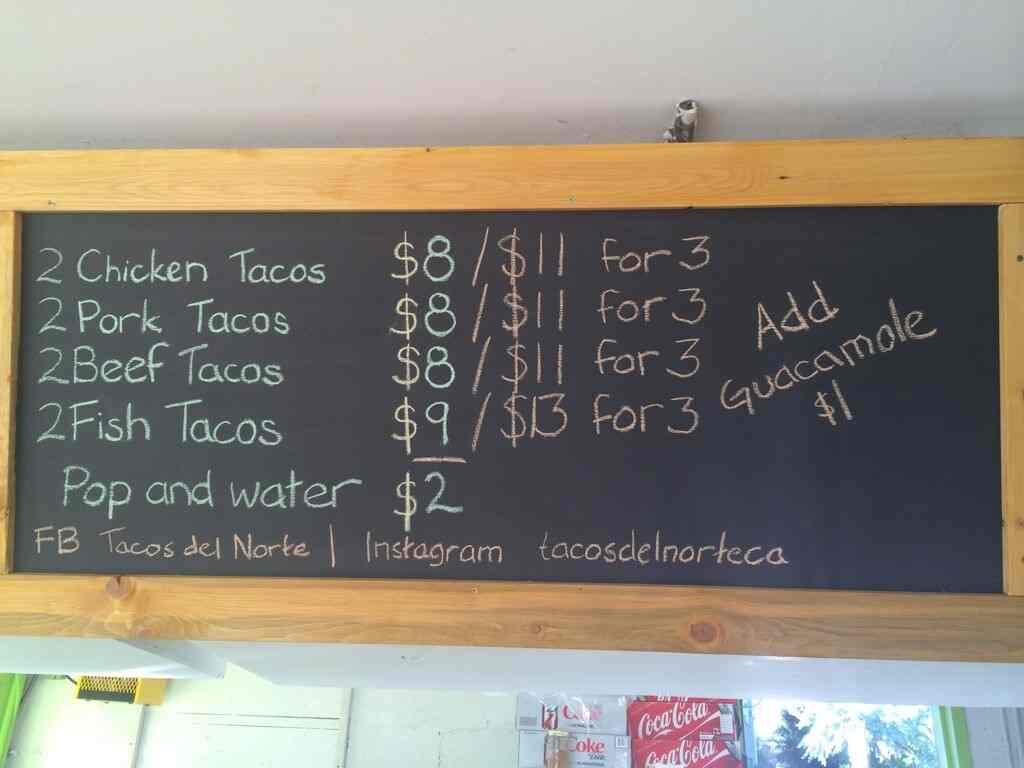 2 Chicken Tacos $8 / $11 for 3
2 Pork Tacos $8 / $11 for 3
2 Beef Tacos $8 / $11 for 3
2 Fish Tacos $9 / $13 for 3
Add
Guacamole
$1
Pop and water $2
FB Tacos del Norte | Instagram tacosdelnorteca
Coke
Coca-Cola
Coke
Coca-Cola